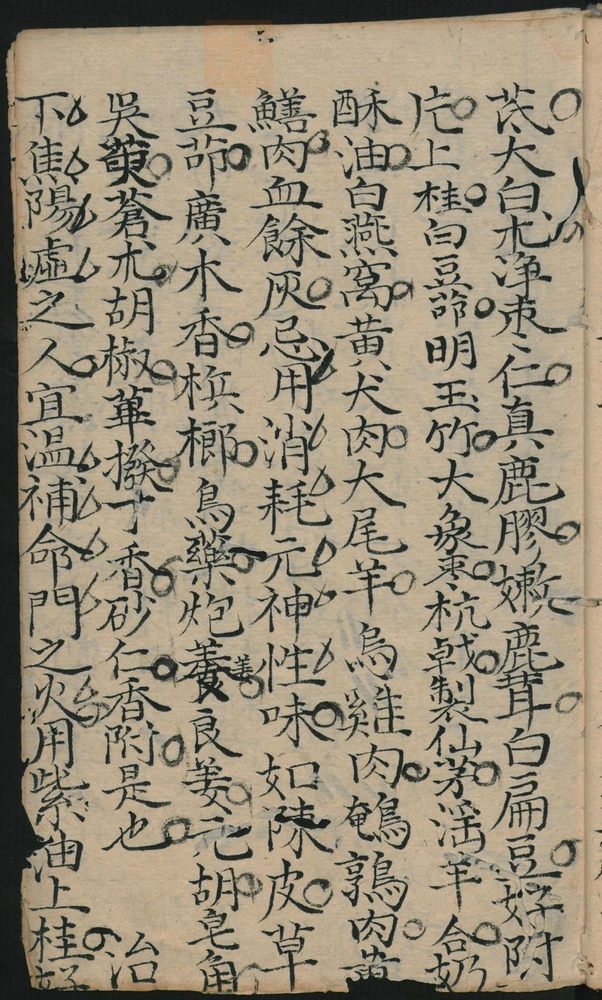 芪大白朮浄枣仁真鹿膠嫩鹿茸白扁豆好附
片上桂白豆茆明玉竹大象枣杭戟製仙茅滛羊合奶
酥油白燕窩黄犬肉大尾羊烏雞肉鵪鶉肉黄
鱔肉血餘灰忌用消耗元神性味如陳皮草
豆茆廣木香梹榔烏藥炮姜良姜元胡皂角
吳萸蒼朮胡椒蓽撥丁香砂仁香附是也 治
下焦陽虛之人宜温補命門之火用紫油上桂好